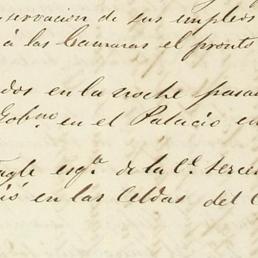 servacion de sus empleos
à las Camaras el pronto
dos en la noche pasa
Gobno. en el Palacio en
Tagle esqte. de la Cl. tercer
ió en las Celdas del C